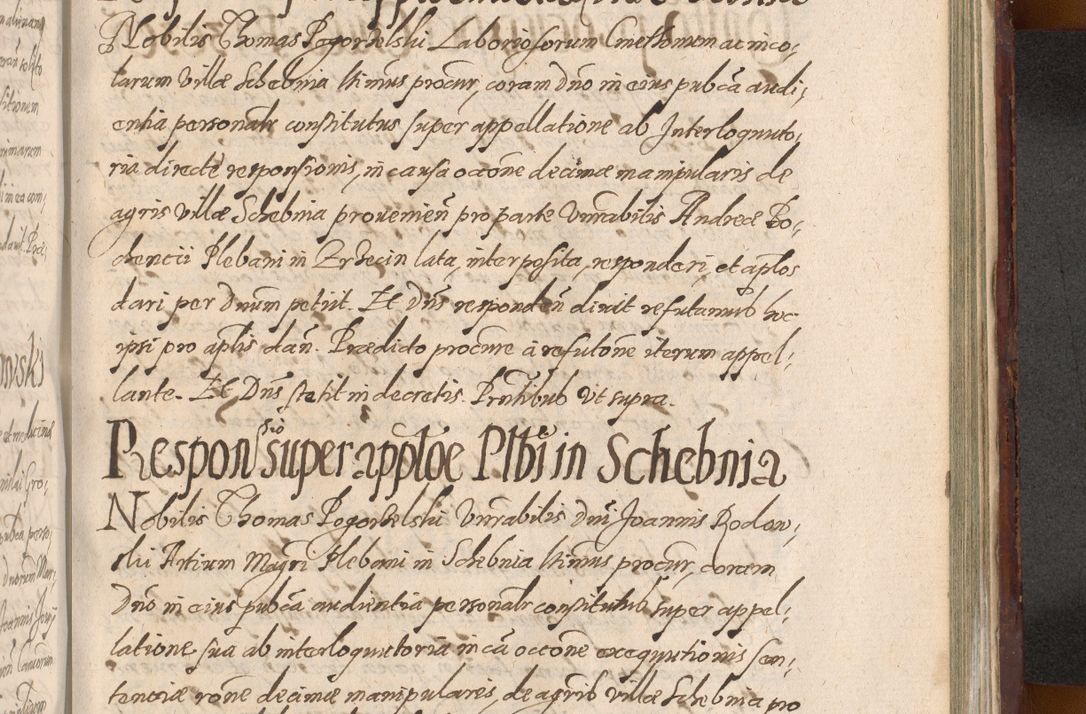 Nobilis Thomas Pogorzelski Laboriosorum Cmethonum ac inco,
larum villæ Schebnia ltimus procur coram Dno in eius pubca audi,
entia personalr constitutus super appellatione ab Interloquuto,
ria directe responsionis, in causa occone decimæ manipularis de
agris villæ Schebnia provenien pro parte Vnrabilis Andreæ Bo,
chencii Plebani in Erdecin lata, interposita, responderi, et aplos
dari per Dnum petiit. Et Dns responden dixit refutamus hoc
ipsi pro aplis dan. Prædicto procure à refutone iterum appel,
lante. Et Dns stetit in decretis. Prntibus Vt supra.
Responsio super applõe Plbi in Schebnia
Nobilis Thomas Pogorzelski Vnrabilis Dni Joannis Rodow,
ski Artium Magri Plebani in Schebnia ltimus procur, coram
Dno in eius pubca audientia personalr constitutus super appel,
latione sua ab interloquutoria in ca occone exequutionis sen,
tentiæ rone decimæ manipularis, de agris villæ Schebnia pro